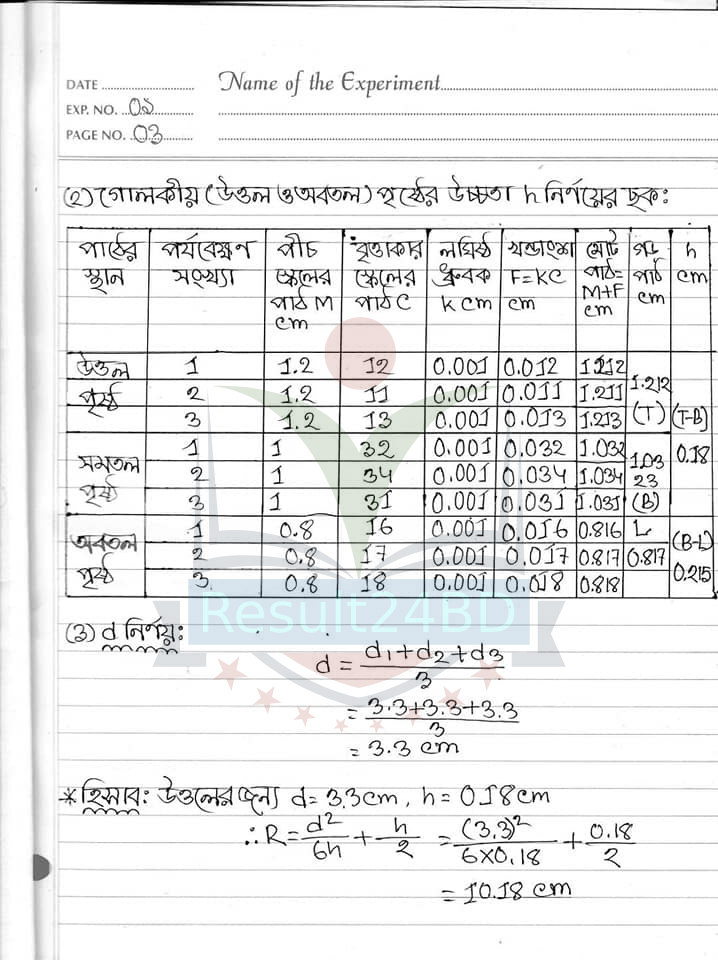 DATE
Name of the Experiment
EXP. NO. 02
PAGE NO. 03
(২) গোলকীয় (উত্তল ও অবতল) পৃষ্ঠের উচ্চতা h নির্ণয়ের ছক:
পাঠের স্থান | পর্যবেক্ষণ সংখ্যা | পীচ স্কেলের পাঠ M cm | বৃত্তাকার স্কেলের পাঠ C | লঘিষ্ঠ ধ্রুবক K cm | খন্ডাংশ F=KC cm | মোট পাঠ= M+F cm | গড় পাঠ cm | h cm
উত্তল পৃষ্ঠ | 1 | 1.2 | 12 | 0.001 | 0.012 | 1.212 | 1.212 (T) | (T-B) 0.18
2 | 1.2 | 11 | 0.001 | 0.011 | 1.211
3 | 1.2 | 13 | 0.001 | 0.013 | 1.213
সমতল পৃষ্ঠ | 1 | 1 | 32 | 0.001 | 0.032 | 1.032 | 1.03 23 (B)
2 | 1 | 34 | 0.001 | 0.034 | 1.034
3 | 1 | 31 | 0.001 | 0.031 | 1.031
অবতল পৃষ্ঠ | 1 | 0.8 | 16 | 0.001 | 0.016 | 0.816 | L 0.817 | (B-L) 0.215
2 | 0.8 | 17 | 0.001 | 0.017 | 0.817
3 | 0.8 | 18 | 0.001 | 0.018 | 0.818
Result24BD
(৩) d নির্ণয়:
d = d1+d2+d3 / 3
= 3.3+3.3+3.3 / 3
= 3.3 cm
* হিসাব: উত্তলের জন্য d= 3.3cm, h= 0.18cm
∴R= d²/6h + h/2 = (3.3)²/6×0.18 + 0.18/2
= 10.18 cm